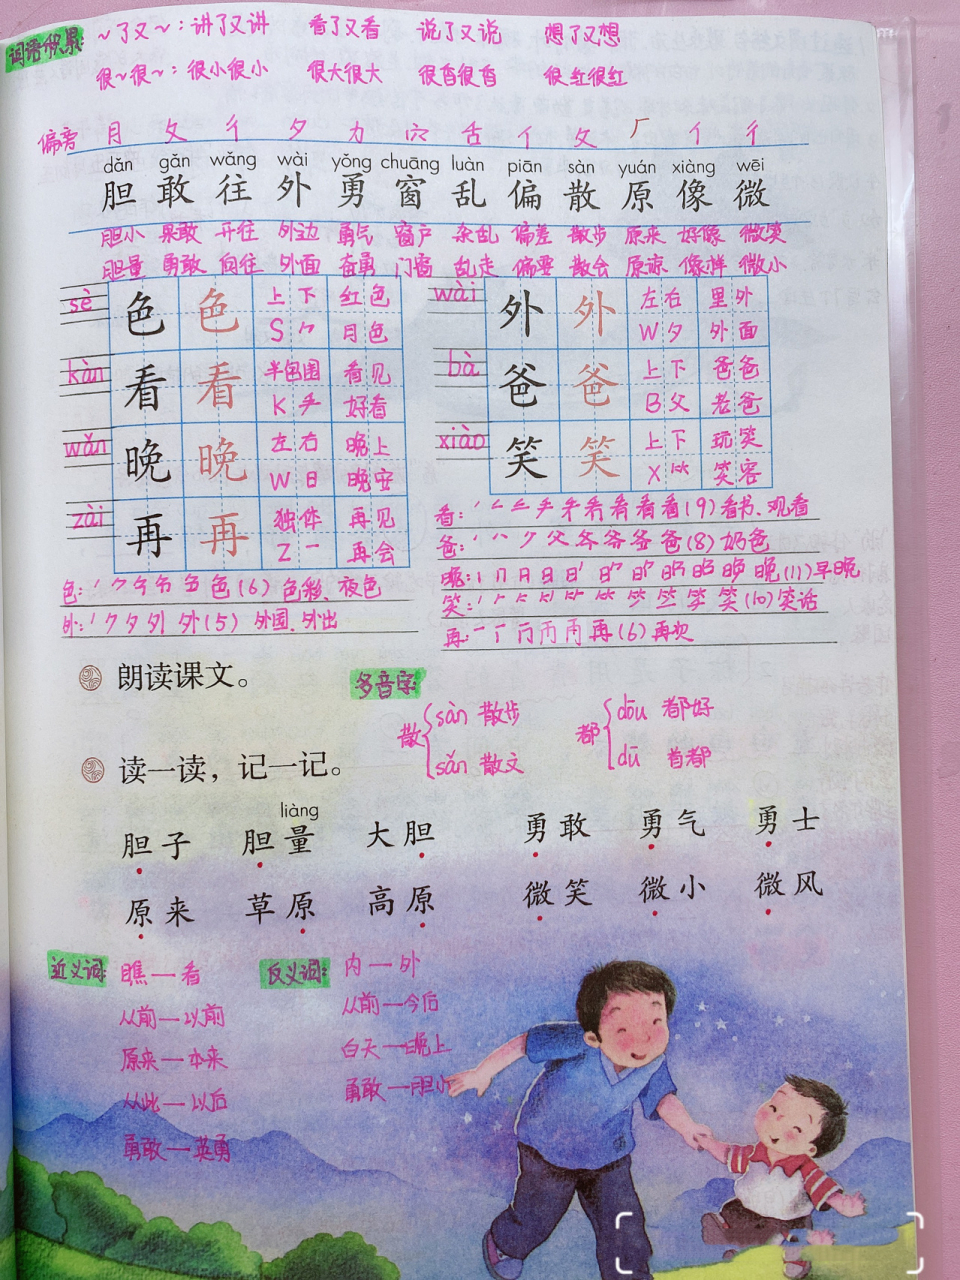 词语积累:
~了又~:讲了又讲 看了又看 说了又说 想了又想
很~很~:很小很小 很大很大 很香很香 很红很红
偏旁 月 攵 彳 夕 力 穴 舌 亻 攵 厂 亻 彳
dǎn gǎn wǎng wài yǒng chuāng luàn piān sàn yuán xiàng wēi
胆 敢 往 外 勇 窗 乱 偏 散 原 像 微
胆小 果敢 开往 外边 勇气 窗户 杂乱 偏差 散步 原来 好像 微笑
胆量 勇敢 向往 外面 奋勇 门窗 乱走 偏要 散会 原谅 像样 微小
sè 色 色 上下 红色
S ⺈ 月色
kàn 看 看 半包围 看见
K 手 好看
wǎn 晚 晚 左右 晚上
W 日 晚安
zài 再 再 独体 再见
Z 一 再会
wài 外 外 左右 里外
W 夕 外面
bà 爸 爸 上下 爸爸
B 父 老爸
xiào 笑 笑 上下 玩笑
X ⺮ 笑容
色: 色(6)色彩、夜色
外: 外(5) 外国、外出
看: 看(9)看书、观看
爸: 爸(8)奶爸
晚: 晚(11)早晚
笑: 笑(10)笑话
再: 再(6)再次
朗读课文。
多音字:
散 sàn 散步
sǎn 散文
都 dōu 都好
dū 首都
读一读，记一记。
liàng
胆子 胆量 大胆 勇敢 勇气 勇士
原来 草原 高原 微笑 微小 微风
近义词:
瞧—看
从前—以前
原来—本来
从此—以后
勇敢—英勇
反义词:
内—外
从前—今后
白天—晚上
勇敢—胆小